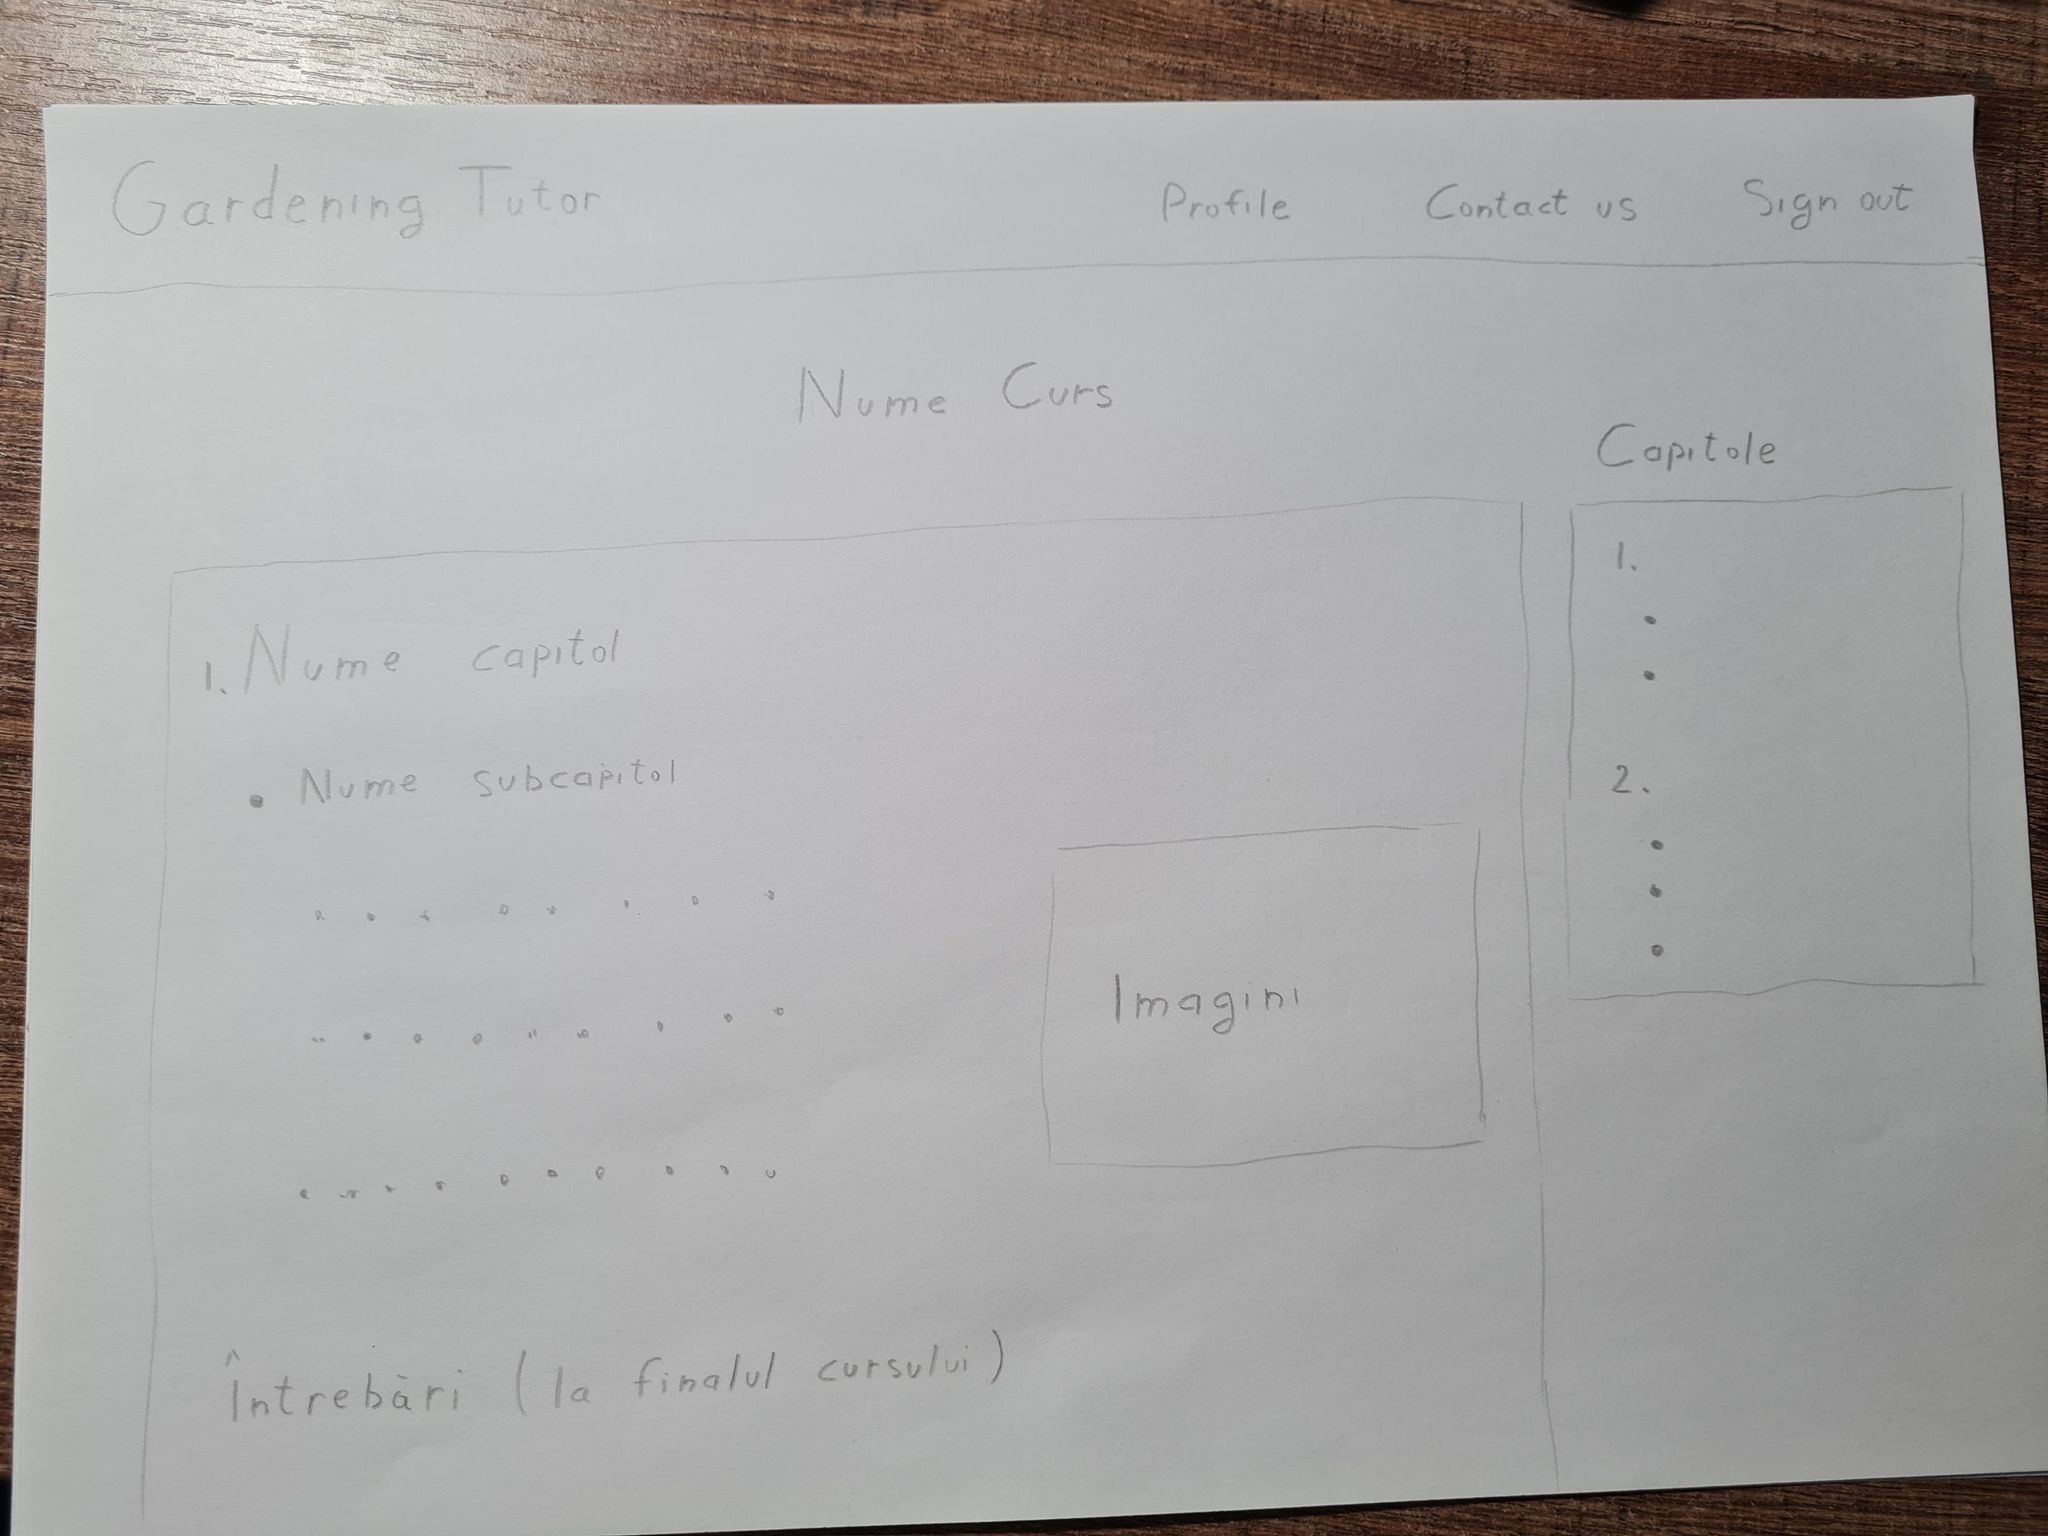 Gardening Tutor Profile Contact us Sign out
Nume Curs
Capitole
1. Nume capitol
• Nume subcapitol
Imagini
Întrebări (la finalul cursului)
1.
•
•
2.
•
•
•